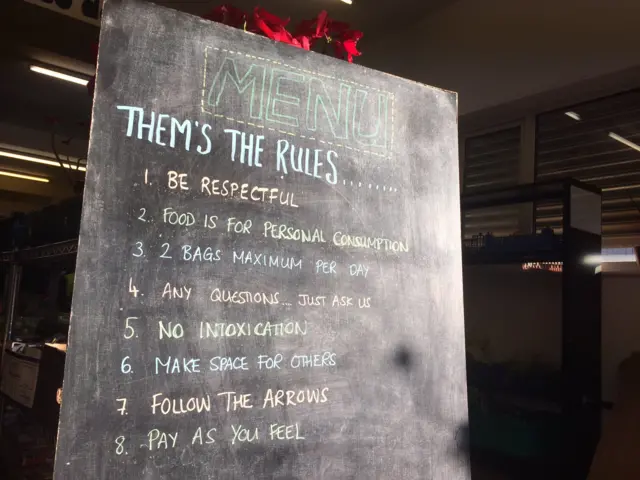 MENU
THEM'S THE RULES........
1. BE RESPECTFUL
2. FOOD IS FOR PERSONAL CONSUMPTION
3. 2 BAGS MAXIMUM PER DAY
4. ANY QUESTIONS... JUST ASK US
5. NO INTOXICATION
6. MAKE SPACE FOR OTHERS
7. FOLLOW THE ARROWS
8. PAY AS YOU FEEL